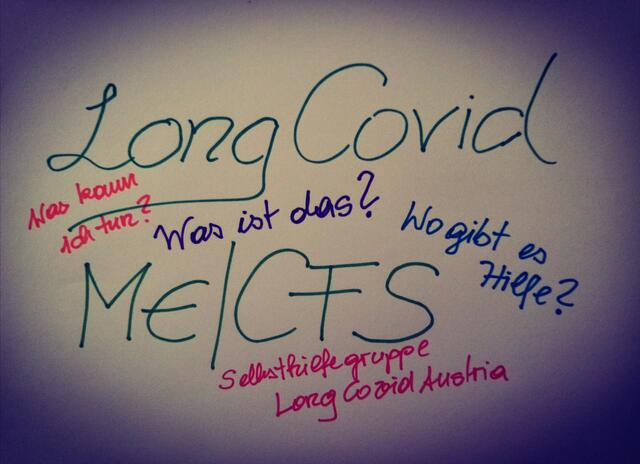 Long Covid
Was kann
ich tun?
Was ist das?
Wo gibt es
Hilfe?
ME/CFS
Selbsthilfegruppe
Long Covid Austria